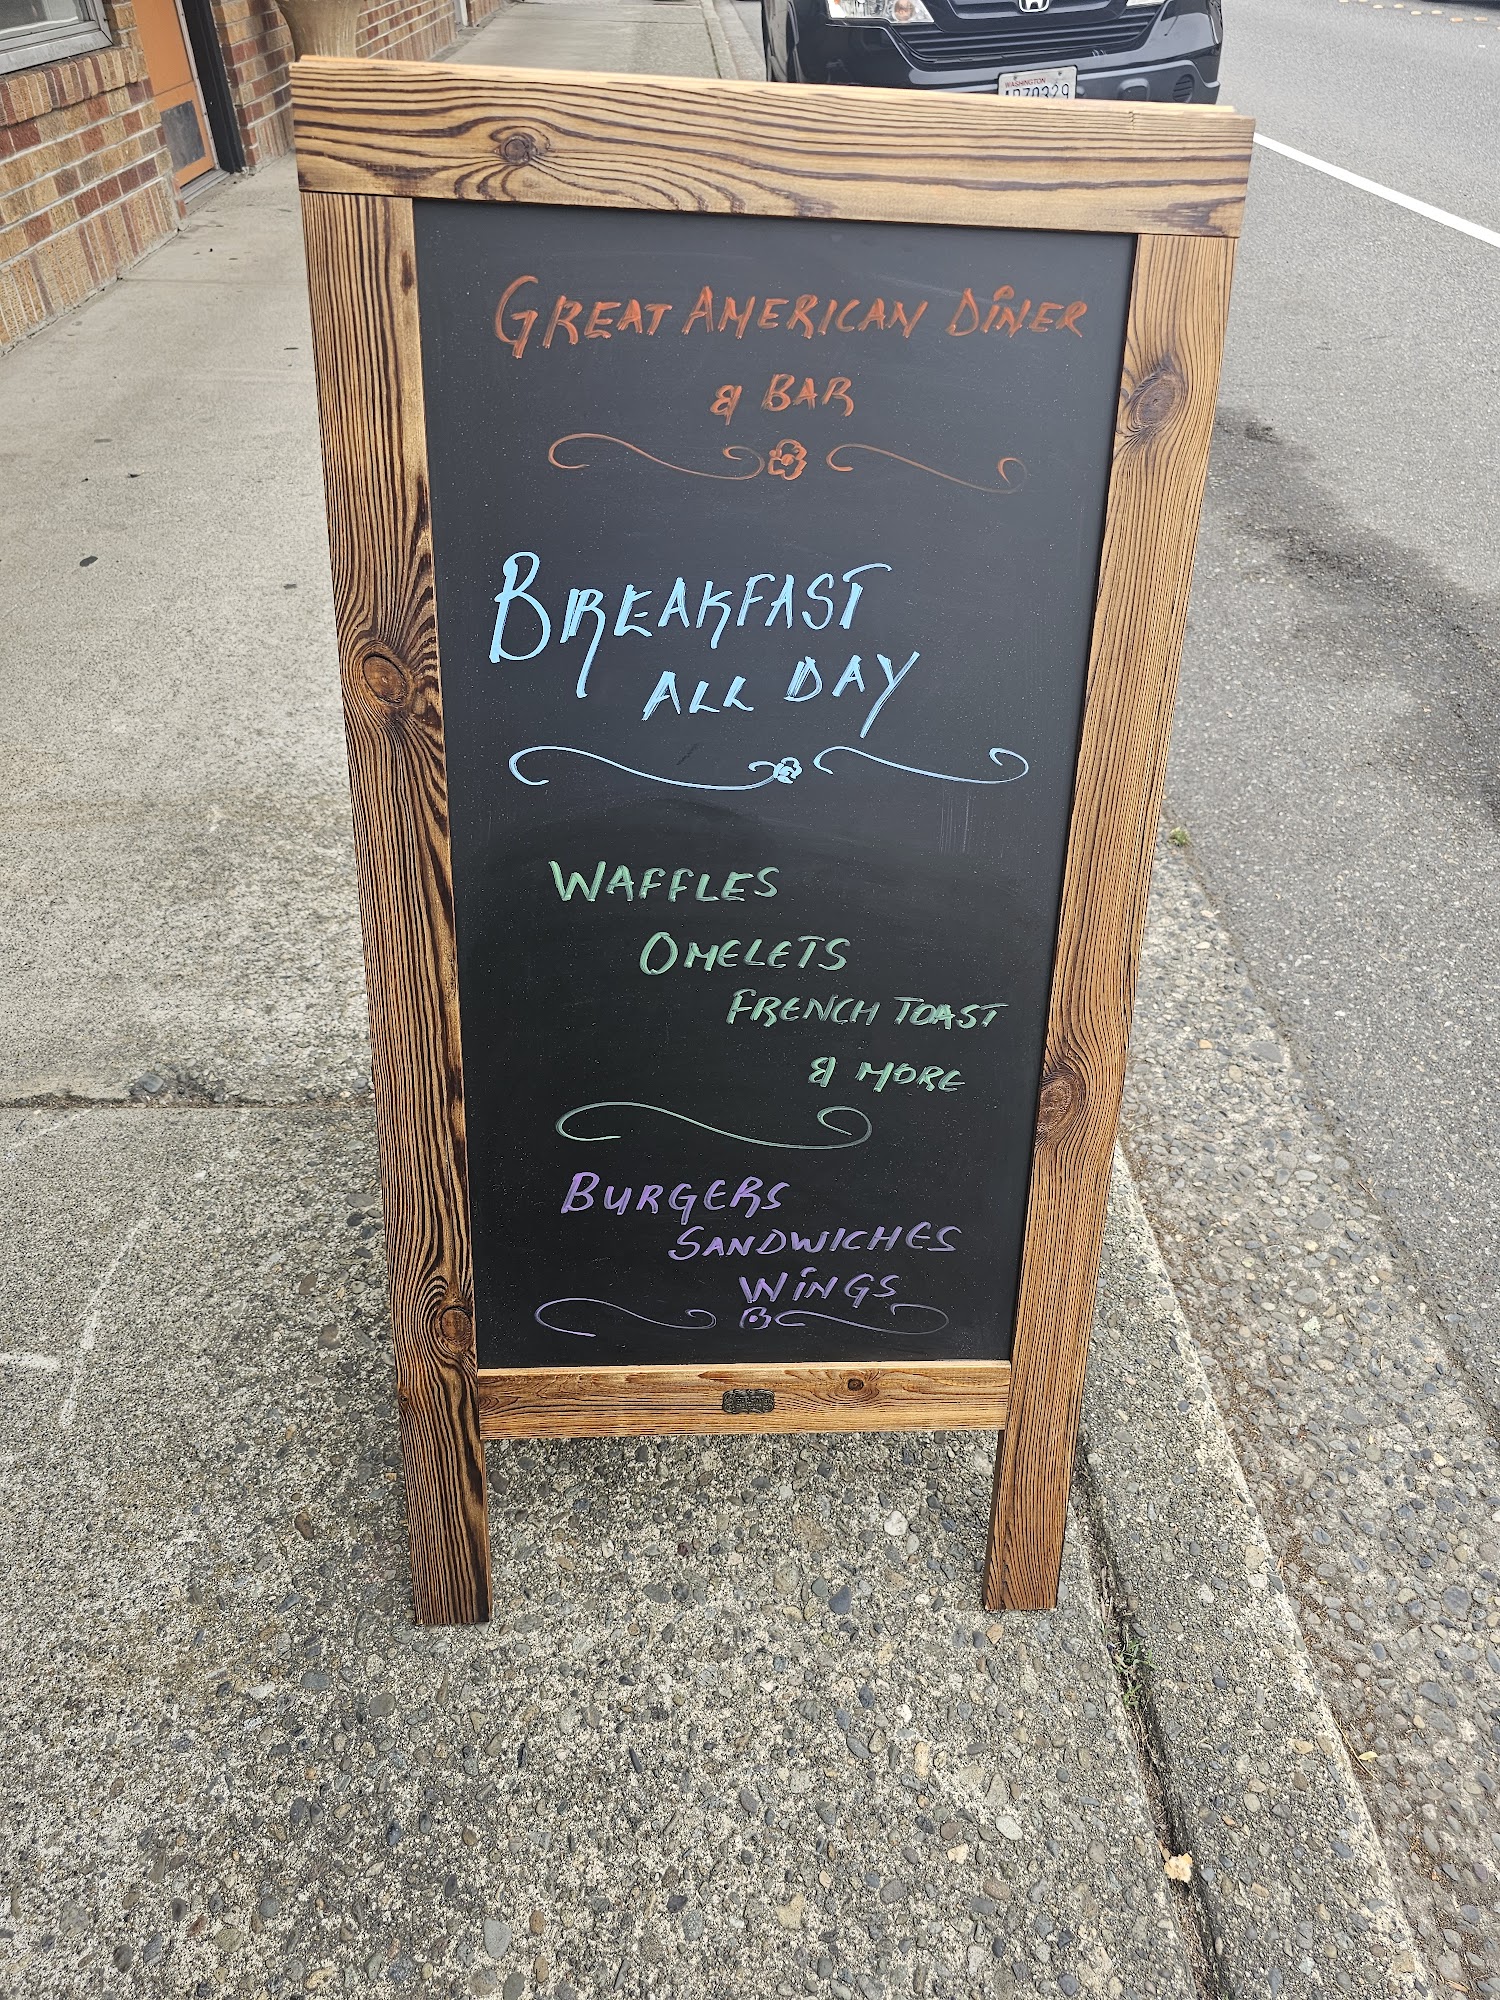 WASHINGTON
GREAT AMERICAN DINER
& BAR
BREAKFAST
ALL DAY
WAFFLES
OMELETS
FRENCH TOAST
& MORE
BURGERS
SANDWICHES
WINGS